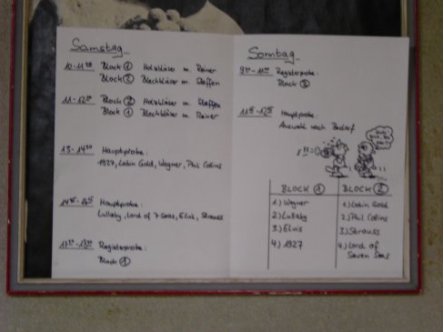 Samstag
10-11
Block ① Holzbläser m. Rainer
Block ② Blechbläser m. Steffen
11-12³⁰ Block ② Holzbläser m. Steffen
Block ① Blechbläser m. Rainer
13-14³⁰ Hauptprobe:
1927, Latin Gold, Wagner, Phil Collins
Hauptprobe:
Lullaby, Lord of 7 Seas, Elvis, Strauss
Registerprobe:
Block ①
Sonntag
Registerprobe:
Block ②
Hauptprobe:
Auswahl nach Bedarf
BLOCK ① BLOCK ②
1.) Wagner 1.) Latin Gold
2.) Lullaby 2.) Phil Collins
3.) Elvis 3.) Strauss
4.) 1927 4.) Lord of
Seven Seas